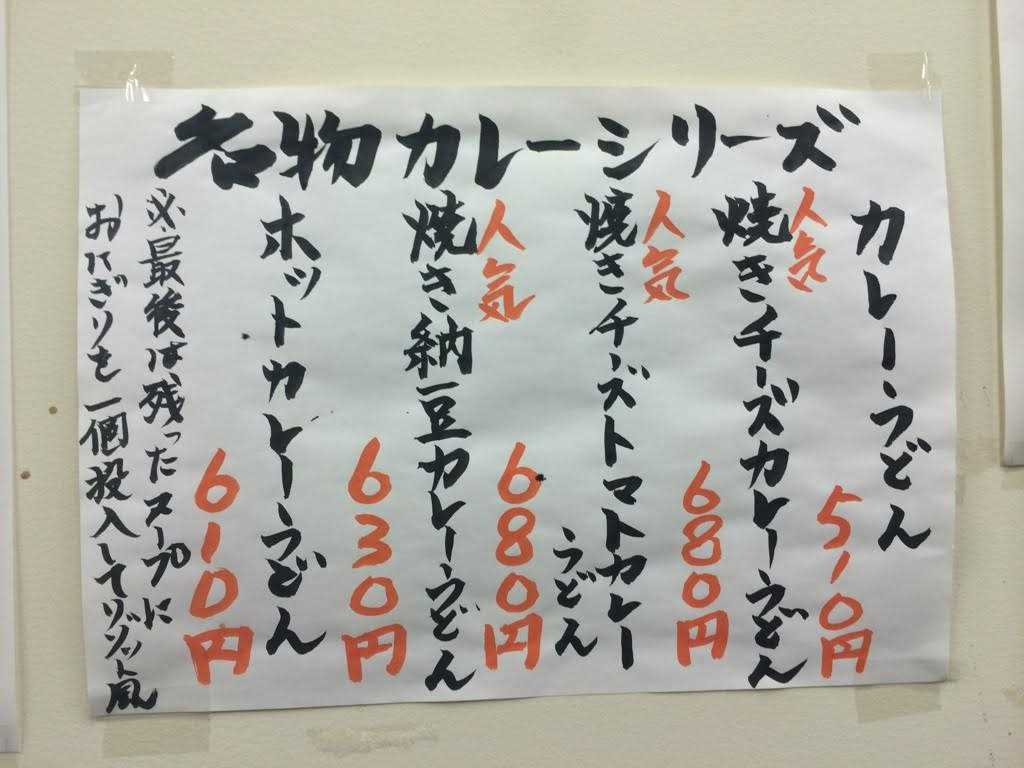 名物カレーシリーズ
カレーうどん
510円
人気
焼きチーズカレーうどん
680円
人気
焼きチーズトマトカレー
うどん
680円
人気
焼き納豆カレーうどん
630円
ホットカレーうどん
610円
※最後は残ったスープに
おにぎりを一個投入してリゾット風